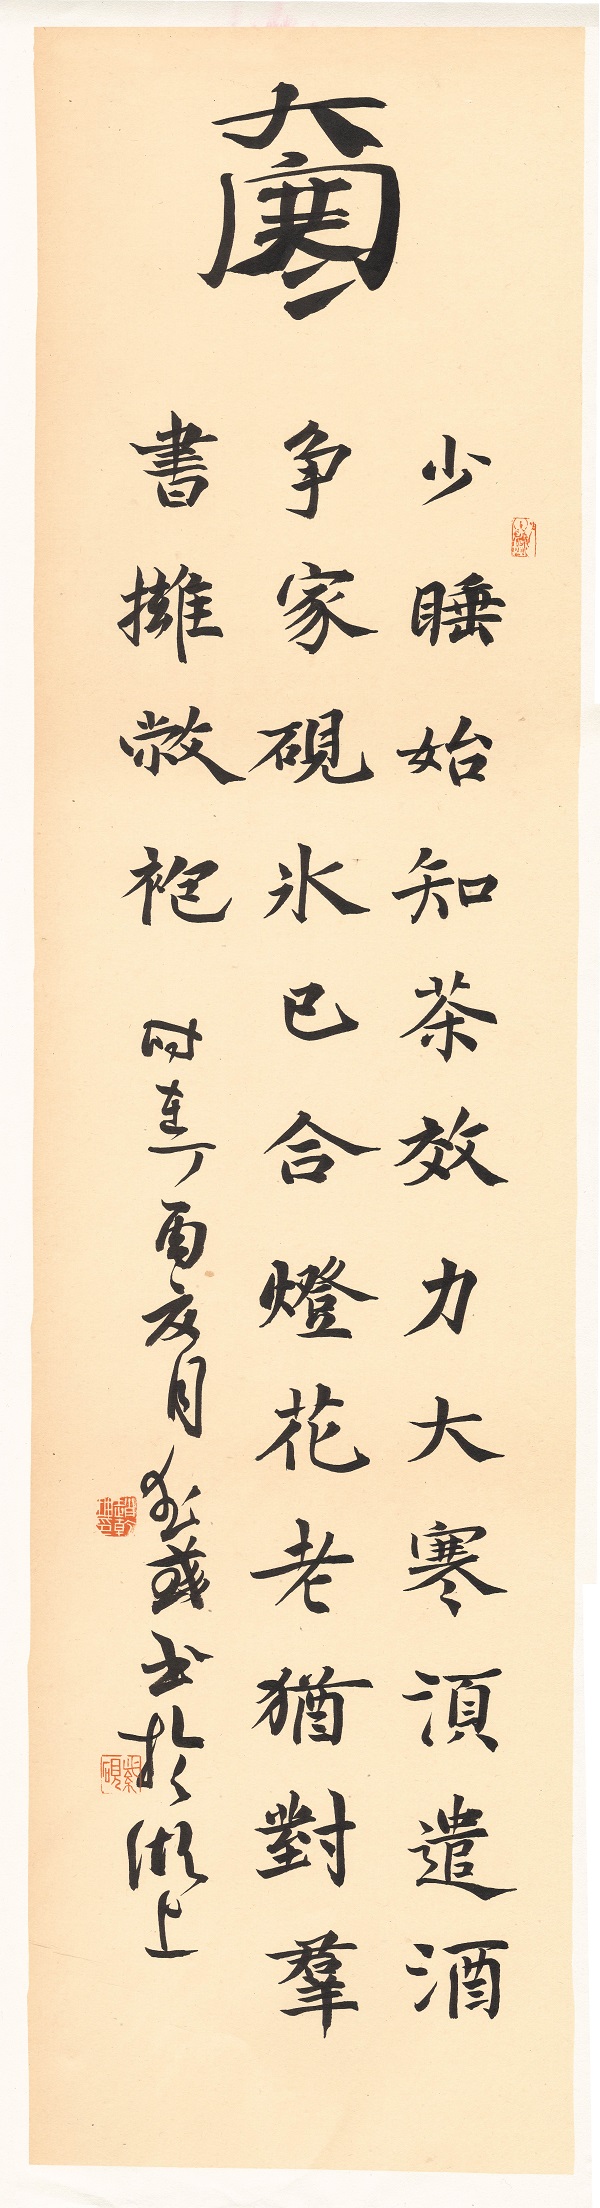 大寒
少睡始知茶效力大寒須遣酒
争家硯氷已合燈花老猶對羣
書擁敝袍
時在丁酉亥月 書於湖上
紫硯